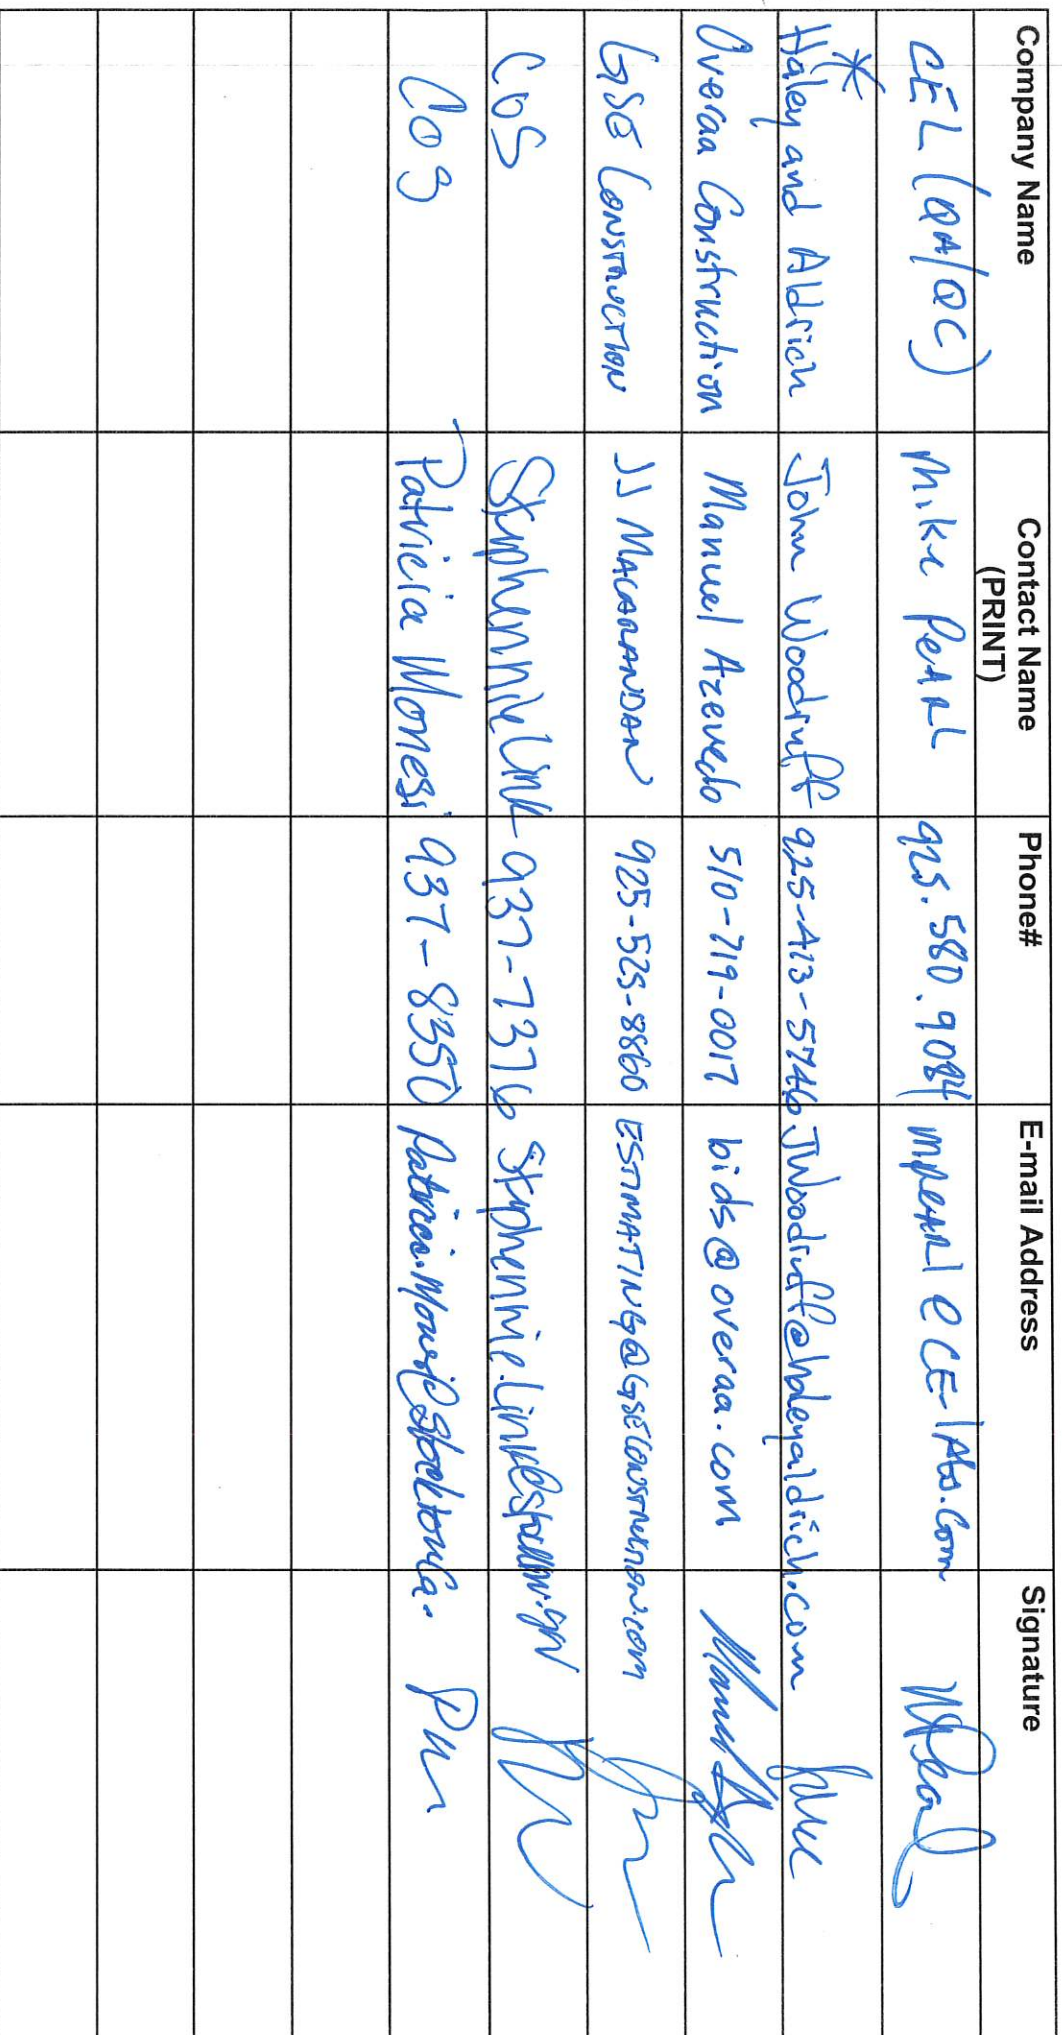 Company Name Contact Name (PRINT) Phone# E-mail Address Signature
CEL (QA/QC) Mike Pearl 925.580.9084 mpearl@CE-labs.com
* Haley and Aldrich John Woodruff 925-413-5746 JWoodruff@haleyaldrich.com
Overaa Construction Manuel Azevedo 510-719-0017 bids@overaa.com
GSE CONSTRUCTION JJ MACARANDAN 925-525-8860 ESTIMATING@GSECONSTRUCTION.COM
COS Stephennie Link 937-7376
COS Patricia Monesi 937-8350